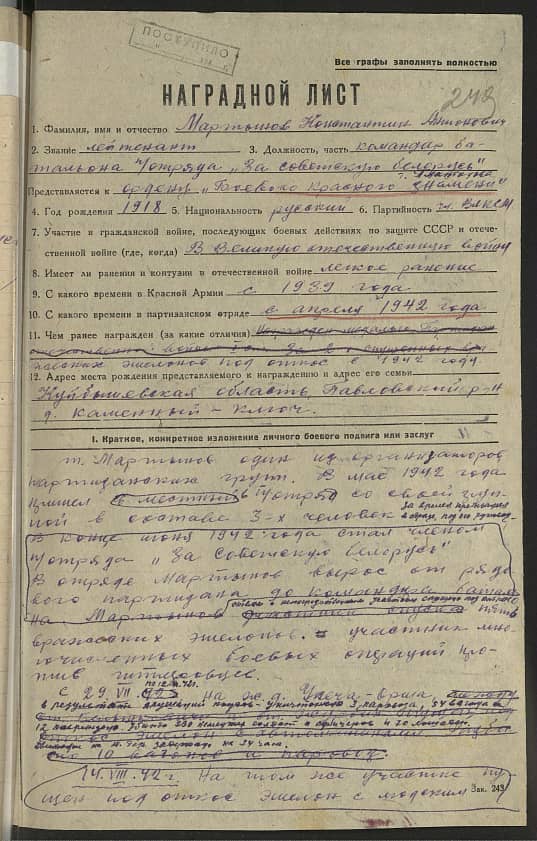 ПОСТУПИЛО
Все графы заполнять полностью
249
НАГРАДНОЙ ЛИСТ
1. Фамилия, имя и отчество Мартынов Константин Антонович
2. Звание лейтенант 3. Должность, часть командир ба-
тальона п/отряда „За советскую белорусь"
Представляется к ордену „Боевого красного знамени"
4. Год рождения 1918 5. Национальность русский 6. Партийность чл. ВЛКСМ
7. Участие в гражданской войне, последующих боевых действиях по защите СССР и отече-
ственной войне (где, когда) В Великую отечественную войну
8. Имеет ли ранения и контузии в отечественной войне легкое ранение
9. С какого времени в Красной Армии с 1939 года
10. С какого времени в партизанском отряде с апреля 1942 года
11. Чем ранее награжден (за какие отличия) Награжден медалью
отечественной войны
эшелонов под откос в 1942 году.
12. Адрес места рождения представляемого к награждению и адрес его семьи
Куйбышевская область, Павловский р-н
д. Каменный-Ключ.
I. Краткое, конкретное изложение личного боевого подвига или заслуг
т. Мартынов один из организаторов
партизанских групп. В мае 1942 года
пришел в п/отряд со своей груп-
пой в составе 3-х человек
В конце июня 1942 года стал членом
п/отряда „За Советскую белорусь"
В отряде Мартынов вырос от рядо
вого партизана до командира баталь
на Мартынов пять
вражеских эшелонов. участник мно
гочисленных боевых операций про-
тив гитлеровцев.
С 29. VII. 42 на ж.д. Унеча-
в результате 3 паровоза, 54 вагона
12 Убито 230 немецко солдат и офицеров и 20 лошадей.
на 24 часа.
10 вагонов и паровоз.
14. VIII. 42 г. На том же участке пу-
щен под откос эшелон с людским
Зак. 243